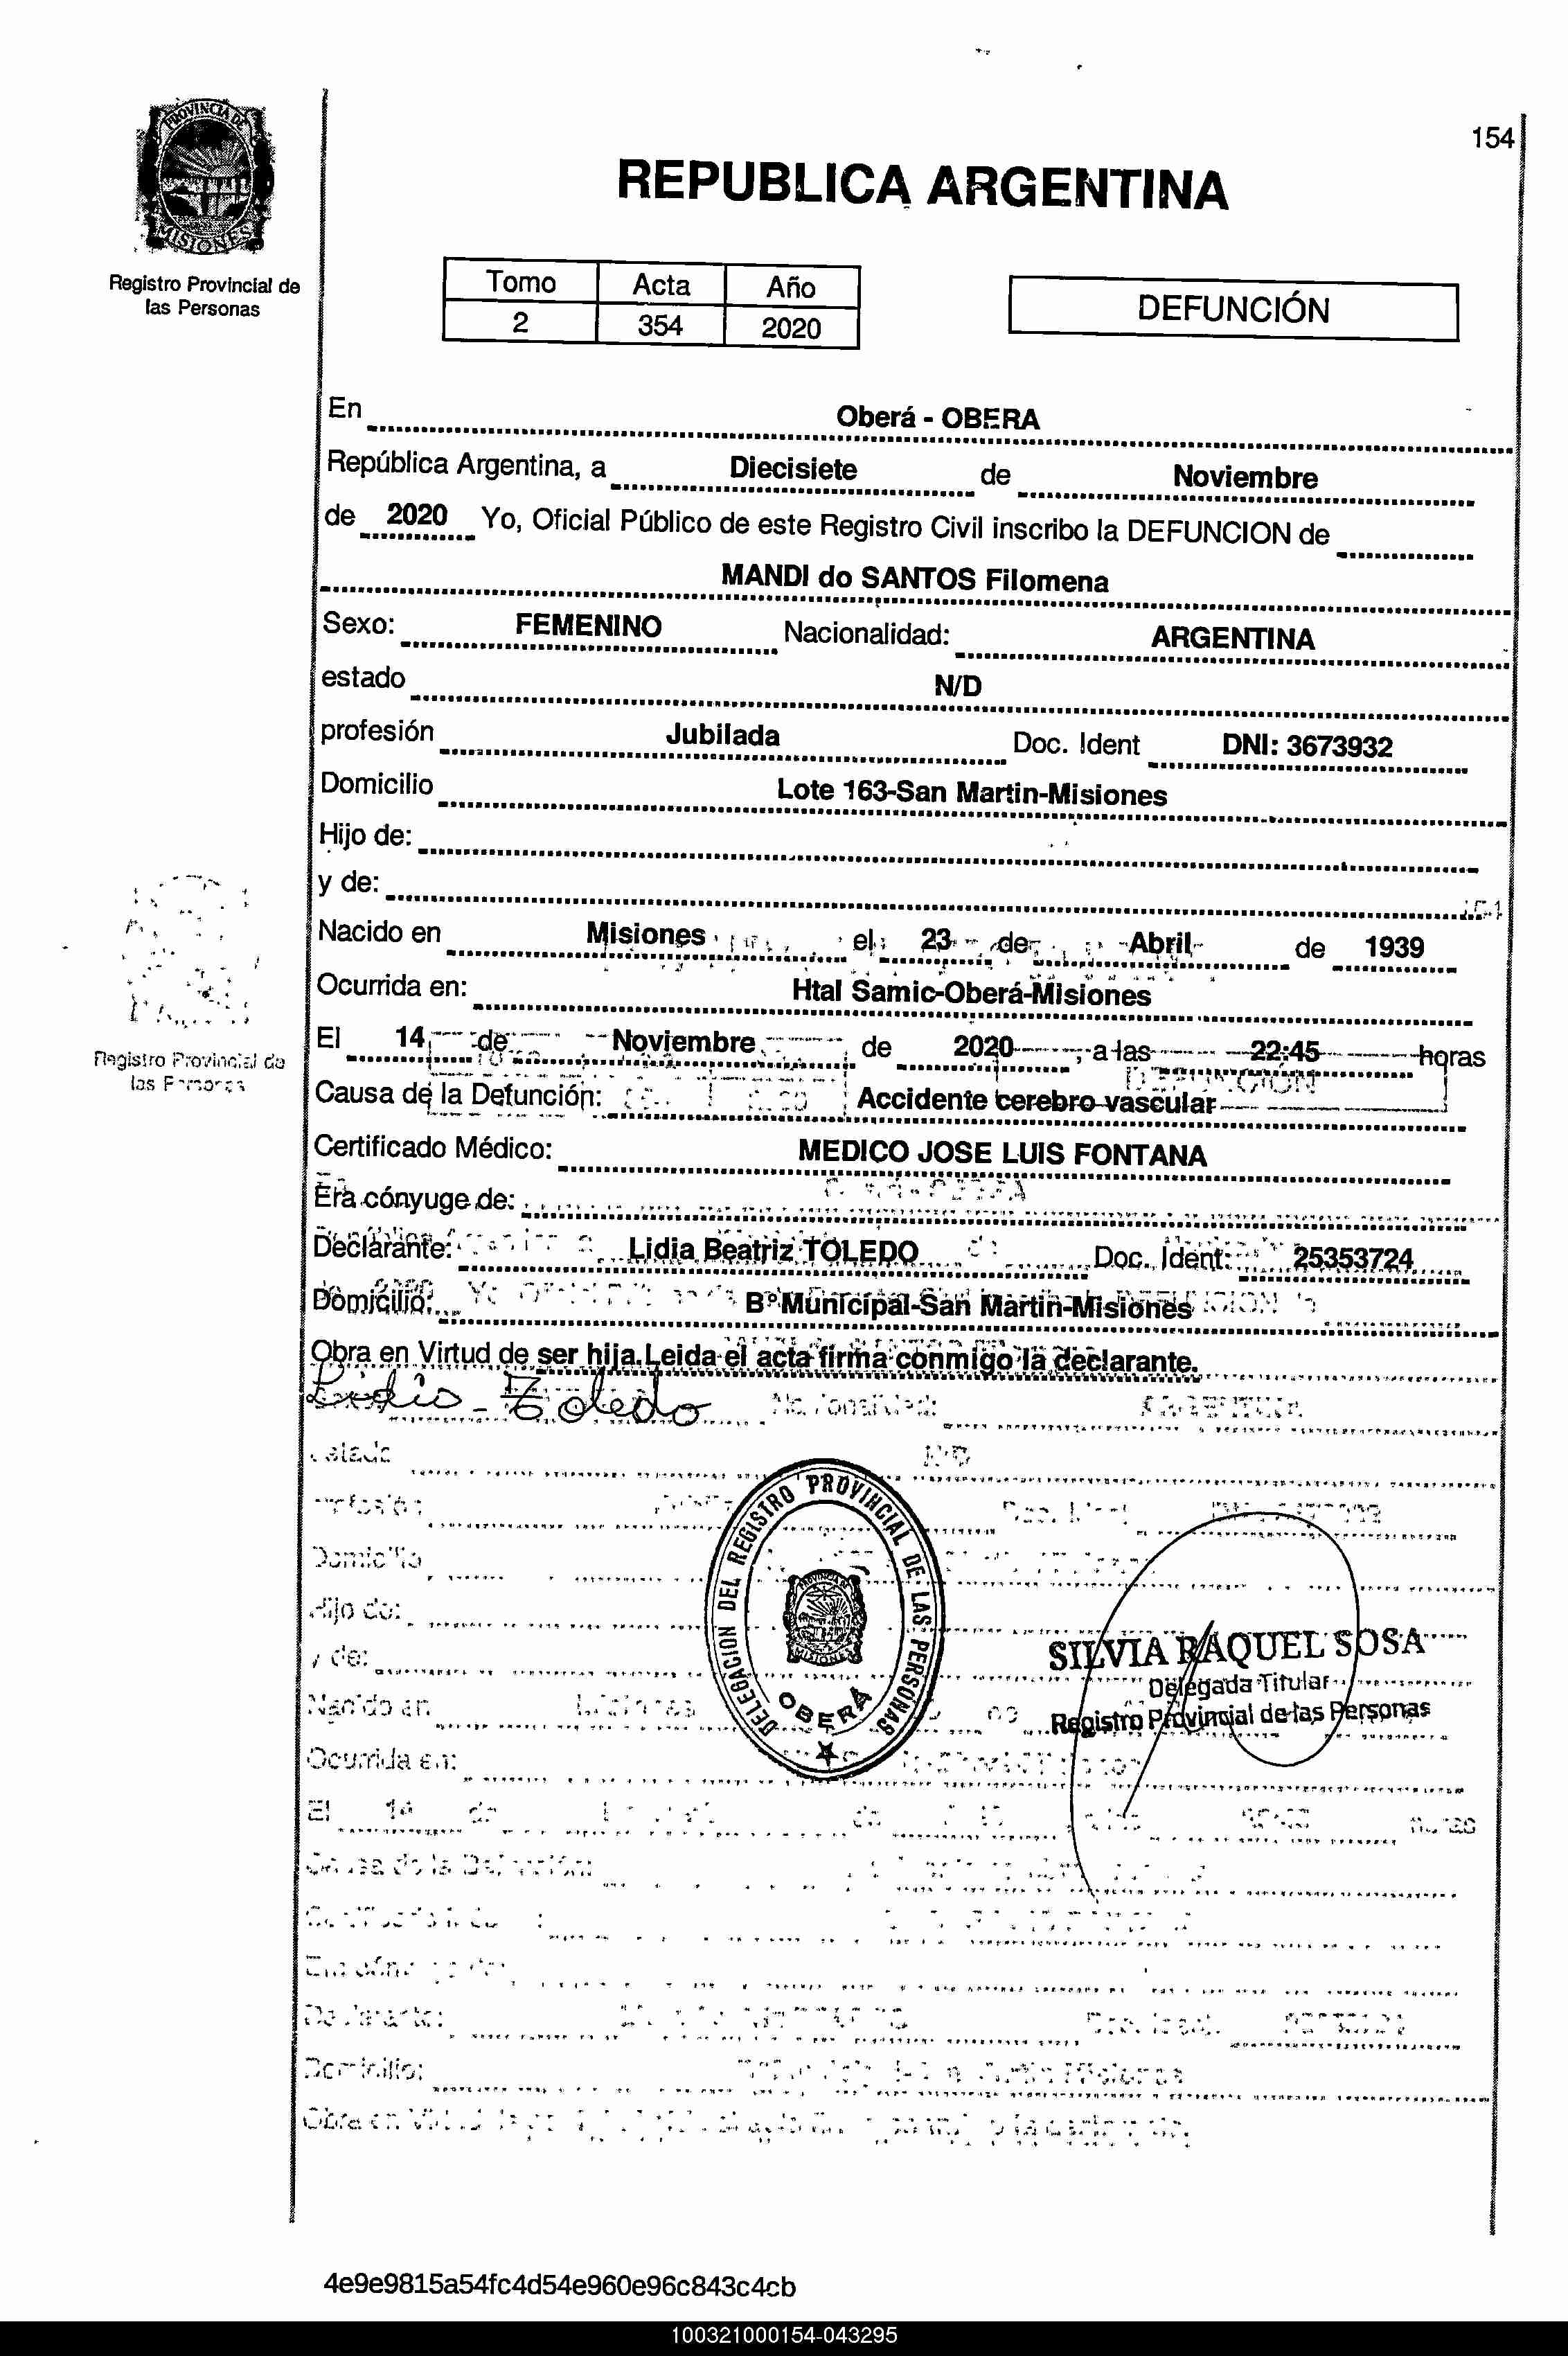 154
PROVINCIA DE
MISIONES
Registro Provincial de
las Personas
REPUBLICA ARGENTINA
Tomo Acta Año
2 354 2020
DEFUNCIÓN
En Oberá - OBERA
República Argentina, a Diecisiete de Noviembre
de 2020 Yo, Oficial Público de este Registro Civil inscribo la DEFUNCION de
MANDI do SANTOS Filomena
Sexo: FEMENINO Nacionalidad: ARGENTINA
estado N/D
profesión Jubilada Doc. Ident DNI: 3673932
Domicilio Lote 163-San Martin-Misiones
Hijo de:
y de:
Nacido en Misiones el 23 de Abril de 1939
Ocurrida en: Htal Samic-Oberá-Misiones
El 14 de Noviembre de 2020 , a las 22:45 horas
Causa de la Defunción: Accidente cerebro vascular
Certificado Médico: MEDICO JOSE LUIS FONTANA
Era cónyuge de:
Declarante: Lidia Beatriz TOLEDO Doc. Ident: 25353724
Domicilio: B° Municipal-San Martin-Misiones
Obra en Virtud de ser hija.Leida el acta firma conmigo la declarante.
Lidia Toledo
DELEGACION DEL REGISTRO PROVINCIAL DE LAS PERSONAS
PROVINCIA DE
MISIONES
OBERÁ
SILVIA RAQUEL SOSA
Delegada Titular
Registro Provincial de las Personas
4e9e9815a54fc4d54e960e96c843c4cb
100321000154-043295